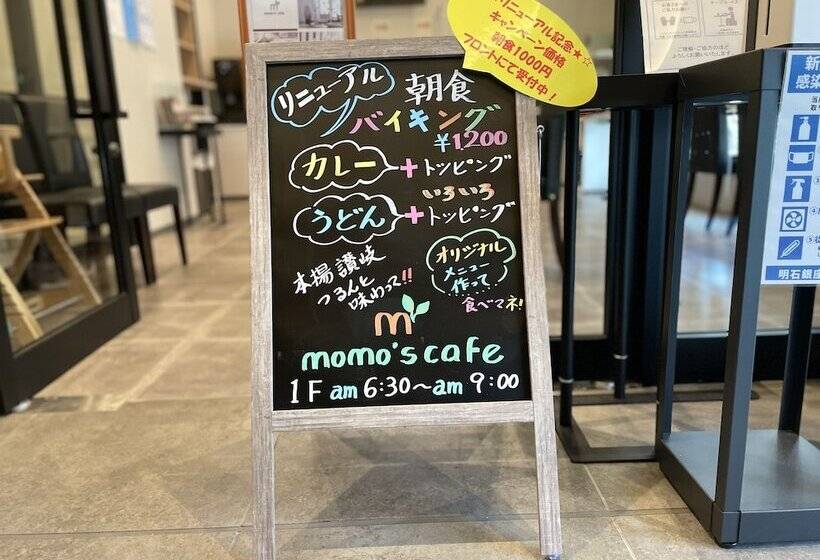 リニューアル記念★☆
キャンペーン価格
朝食1000円
フロントにて受付中!
リニューアル
朝食
バイキング
¥1,200
カレー+トッピング
いろいろ
うどん+トッピング
本場讃岐
つるんと
味わって!!
オリジナル
メニュー
作って
食べマネ!
m
momo's cafe
1F am 6:30~am 9:00
新
感染
明石銀座